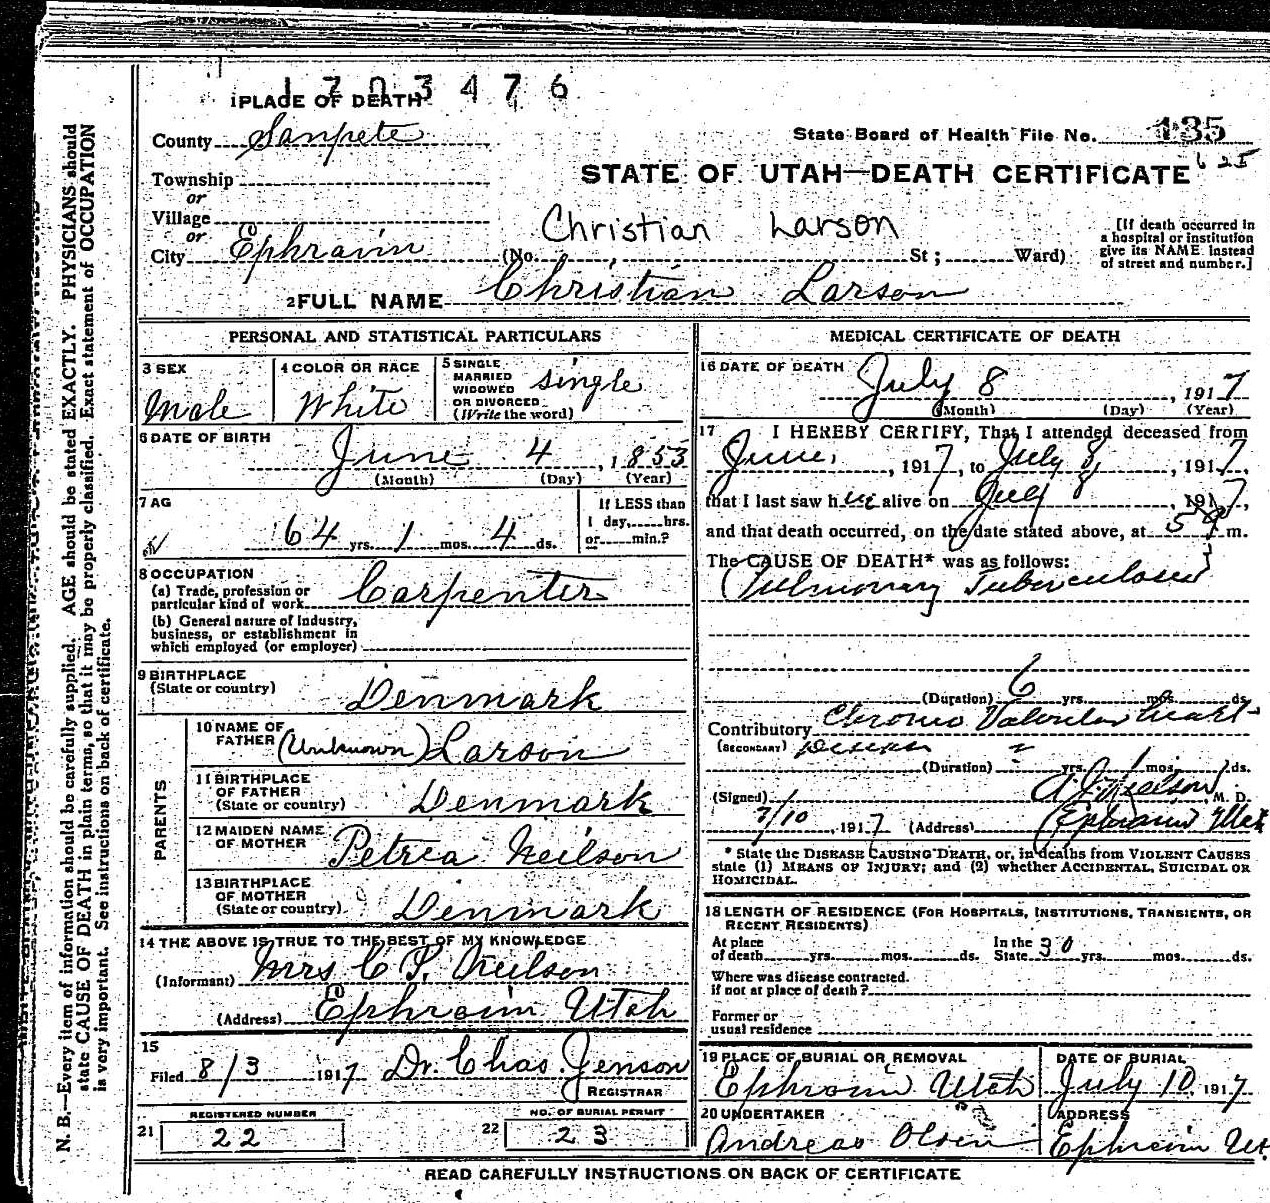 1703476
1 PLACE OF DEATH
County Sanpete
State Board of Health File No. 135
Township
STATE OF UTAH—DEATH CERTIFICATE 625
or
Village
or
City Ephraim
Christian Larson
(No. St; Ward)
[If death occurred in
a hospital or institution
give its NAME instead
of street and number.]
2 FULL NAME Christian Larson
PERSONAL AND STATISTICAL PARTICULARS
3 SEX
Male
4 COLOR OR RACE
White
5 SINGLE
MARRIED
WIDOWED
OR DIVORCED
(Write the word)
single
6 DATE OF BIRTH
June 4, 1853
(Month) (Day) (Year)
7 AG
64 yrs. 1 mos. 4 ds.
If LESS than
1 day, hrs.
or min.?
8 OCCUPATION
(a) Trade, profession or
particular kind of work Carpenter
(b) General nature of industry,
business, or establishment in
which employed (or employer)
9 BIRTHPLACE
(State or country) Denmark
PARENTS
10 NAME OF
FATHER (Unknown) Larson
11 BIRTHPLACE
OF FATHER
(State or country) Denmark
12 MAIDEN NAME
OF MOTHER Petrea Neilson
13 BIRTHPLACE
OF MOTHER
(State or country) Denmark
14 THE ABOVE IS TRUE TO THE BEST OF MY KNOWLEDGE
(Informant) Mrs C P. Neilson
(Address) Ephraim Utah
15
Filed 8/3 1917 Dr. Chas. Jenson
REGISTRAR
REGISTERED NUMBER
21 22
NO. OF BURIAL PERMIT
22 23
MEDICAL CERTIFICATE OF DEATH
16 DATE OF DEATH
July 8, 1917
(Month) (Day) (Year)
17 I HEREBY CERTIFY, That I attended deceased from
June, 1917, to July 8, 1917,
that I last saw him alive on July 8, 1917,
and that death occurred, on the date stated above, at 5 m.
The CAUSE OF DEATH* was as follows:
Pulmonary Tuberculosis
(Duration) 6 yrs. mos. ds.
Contributory Chronic Valvular heart
(SECONDARY) Disease
(Duration) yrs. mos. ds.
(Signed) Neilson M. D.
7/10, 1917 (Address) Ephraim Utah
* State the DISEASE CAUSING DEATH, or, in deaths from VIOLENT CAUSES
state (1) MEANS OF INJURY; and (2) whether ACCIDENTAL, SUICIDAL OR
HOMICIDAL.
18 LENGTH OF RESIDENCE (FOR HOSPITALS, INSTITUTIONS, TRANSIENTS, OR
RECENT RESIDENTS)
At place
of death yrs. mos. ds.
In the
State 30 yrs. mos. ds.
Where was disease contracted.
if not at place of death?
Former or
usual residence
19 PLACE OF BURIAL OR REMOVAL
Ephraim Utah
DATE OF BURIAL
July 10, 1917
20 UNDERTAKER
Andreas Olsen
ADDRESS
Ephraim Ut.
READ CAREFULLY INSTRUCTIONS ON BACK OF CERTIFICATE
N. B.—Every item of information should be carefully supplied. AGE should be stated EXACTLY. PHYSICIANS should
state CAUSE OF DEATH in plain terms, so that it may be properly classified. Exact statement of OCCUPATION
is very important. See instructions on back of certificate.